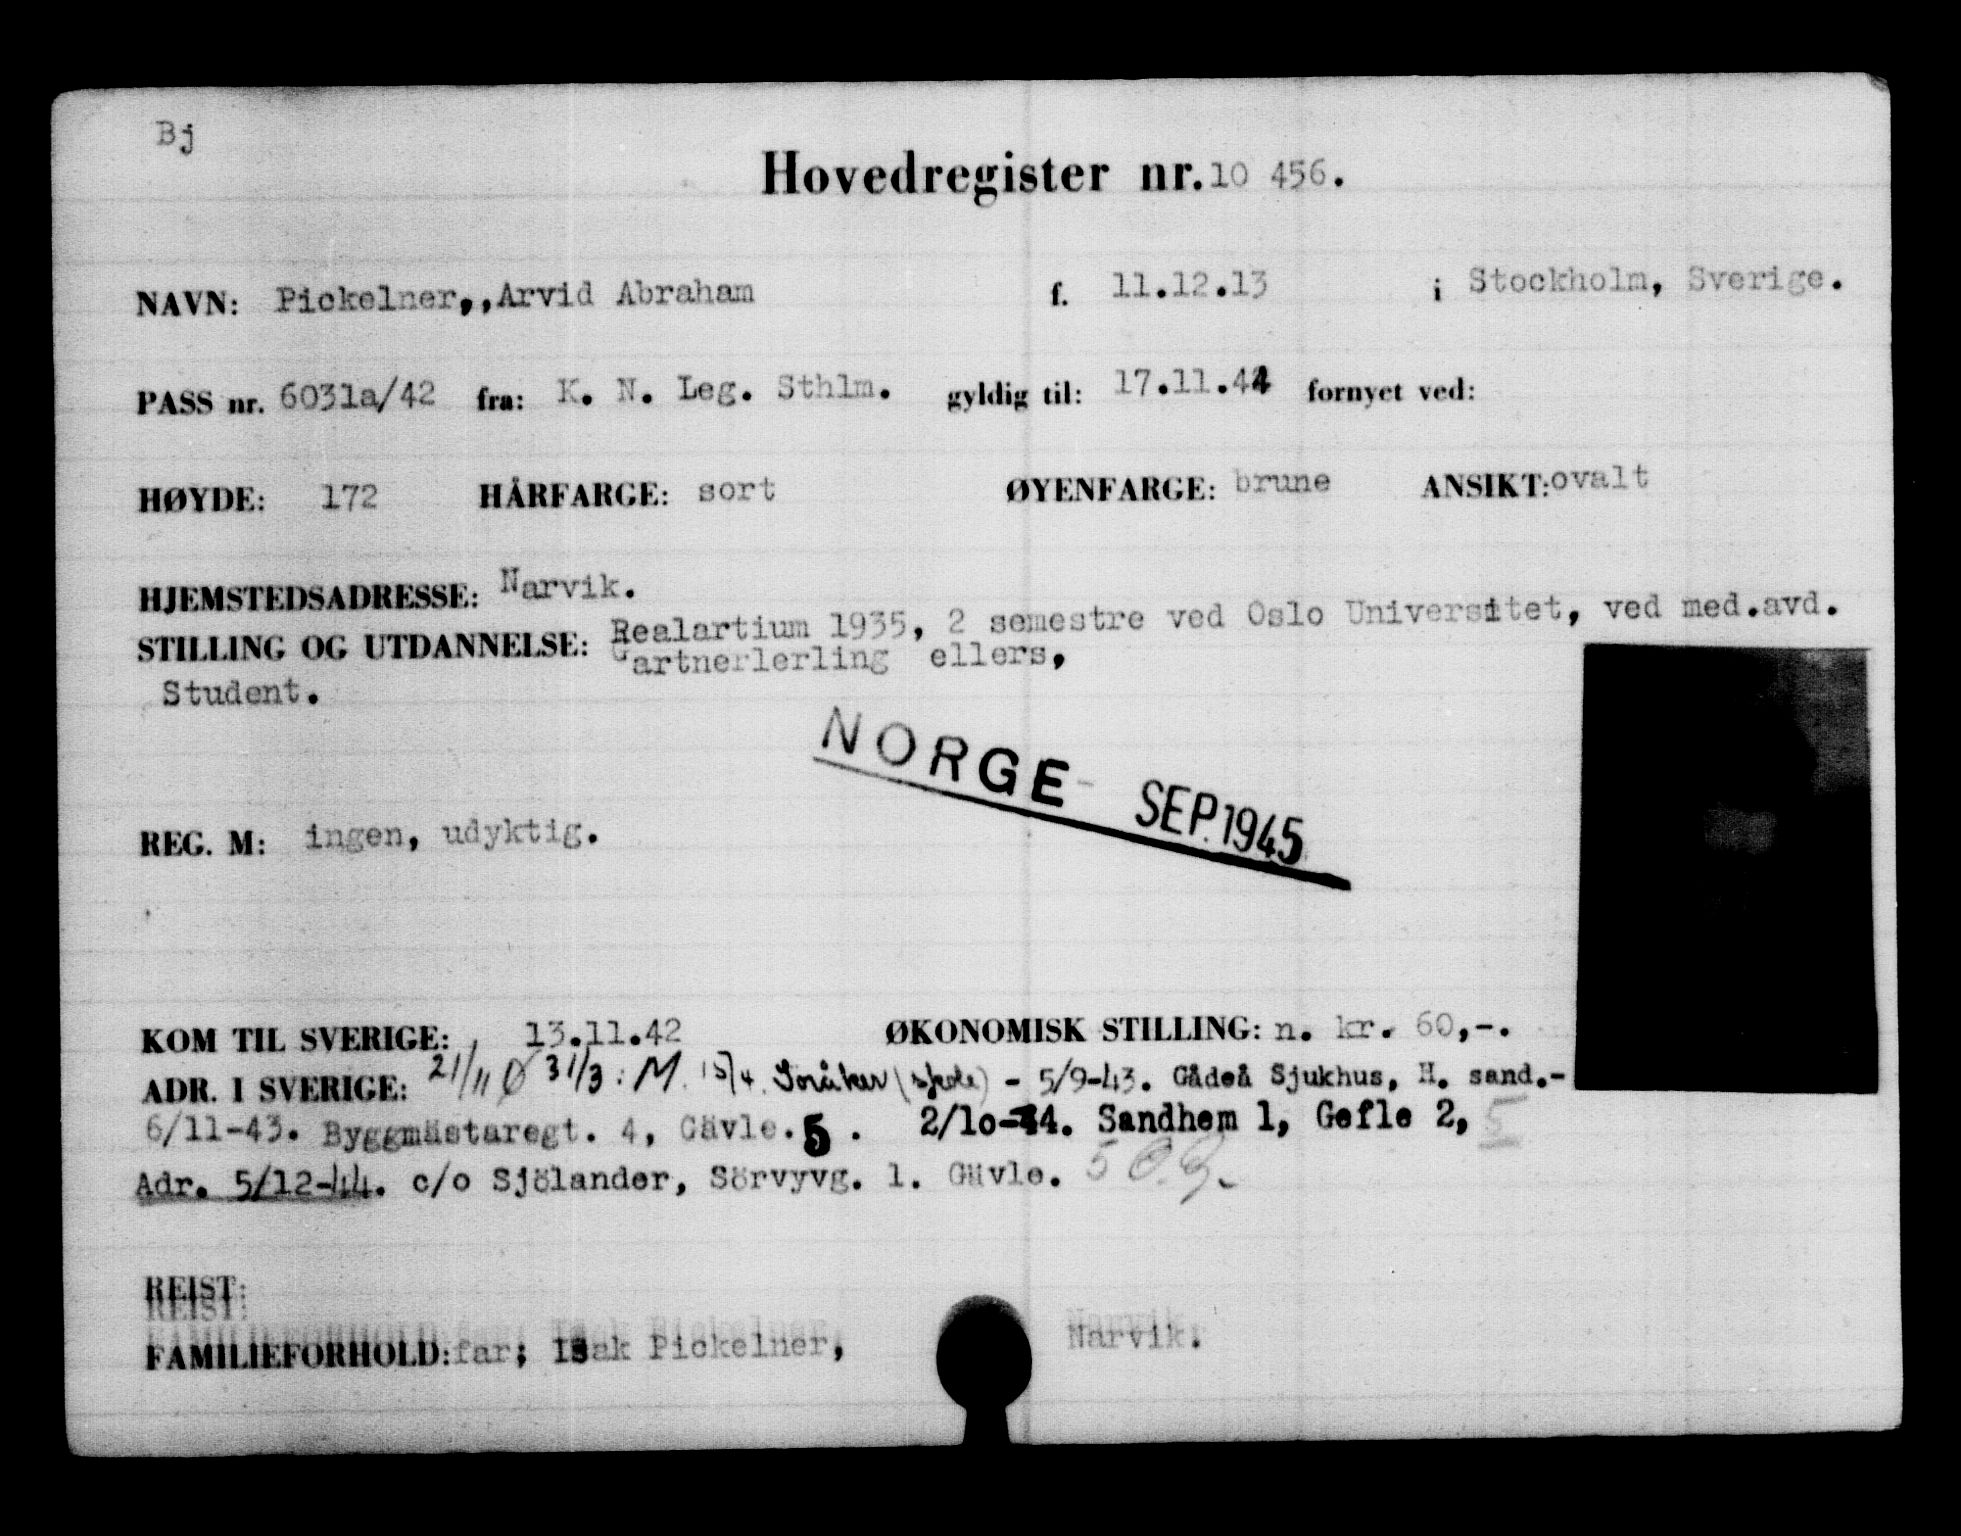 Bj
Hovedregister nr. 10 456.
NAVN: Pickelner,,Arvid Abraham f. 11.12.13 i Stockholm, Sverige.
PASS nr. 6031a/42 fra: K. N. Leg. Sthlm. gyldig til: 17.11.44 fornyet ved:
HØYDE: 172 HÅRFARGE: sort ØYENFARGE: brune ANSIKT: ovalt
HJEMSTEDSADRESSE: Narvik.
STILLING OG UTDANNELSE: Realartium 1935, 2 semestre ved Oslo Universitet, ved med.avd.
Gartnerlerling ellers,
Student.
NORGE - SEP. 1945
REG. M: ingen, udyktig.
KOM TIL SVERIGE: 13.11.42 ØKONOMISK STILLING: n. kr. 60,-.
ADR. I SVERIGE: 21/11 Ø 31/3: M. 15/4. Soråker (skole) - 5/9-43. Gådeå Sjukhus, H. sand.-
6/11-43. Byggmästaregt. 4, Gävle. 5 . 2/1o-44. Sandhem 1, Gefle 2, 5
Adr. 5/12-44. c/o Sjölander, Sörvyvg. 1. Gävle. 5
REIST:
FAMILIEFORHOLD: far; Isak Pickelner, Narvik.